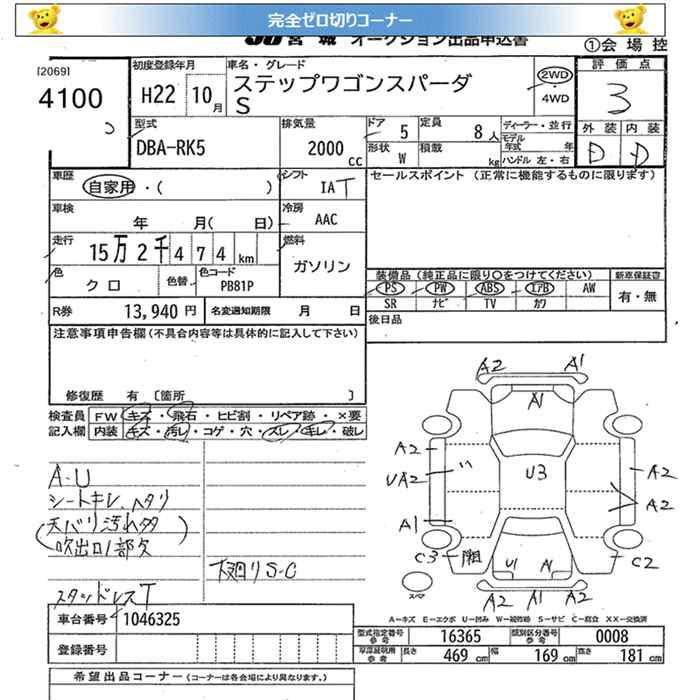 完全ゼロ切りコーナー
JU宮城 オークション出品申込書
①会場控
[2069]
4100
初度登録年月 H22 10月
車名・グレード
ステップワゴンスパーダ
S
2WD
・4WD
評価点
3
外装 内装
D D
型式
DBA-RK5
排気量
2000 cc
ドア 5
形状 W
定員 8人
積載 kg
ディーラー・並行
モデル年式 年
ハンドル 左・右
車歴
自家用・( )
シフト
IAT
セールスポイント (正常に機能するものに限ります)
車検
年 月( 日)
冷房
AAC
走行
15万2千474km
燃料
ガソリン
色
クロ
色替
色コード
PB81P
装備品 (純正品に限り〇をつけてください)
新車保証書
PS PW ABS エアB AW
SR ナビ TV カワ
有・無
R券 13,940円
名変通知期限 月 日
後日品
注意事項申告欄 (不具合内容等は具体的に記入して下さい)
修復歴 有 〔箇所 〕
検査員記入欄
FW キズ・飛石・ヒビ割・リペア跡・×要
内装 キズ・汚レ・コゲ・穴・スレ・キレ・破レ
A・U
シートキレ、ヘタリ
(天バリ汚れ多)
吹出口1部欠
下廻りS・C
スタッドレスT
A2 A1
A1
A2
UA2
U3
A2
A2
A1
C3
C2
U1 A1
A2 A1 A2
スペア
A=キズ E=エクボ U=凹み W=補修跡 S=サビ C=腐食 XX=交換済
車台番号 1046325
登録番号
型式指定番号 参考 16365
類別区分番号 参考 0008
車庫証明用 参考 長さ 469cm 幅 169cm 高さ 181cm
希望出品コーナー (コーナーは各会場により異なります。)